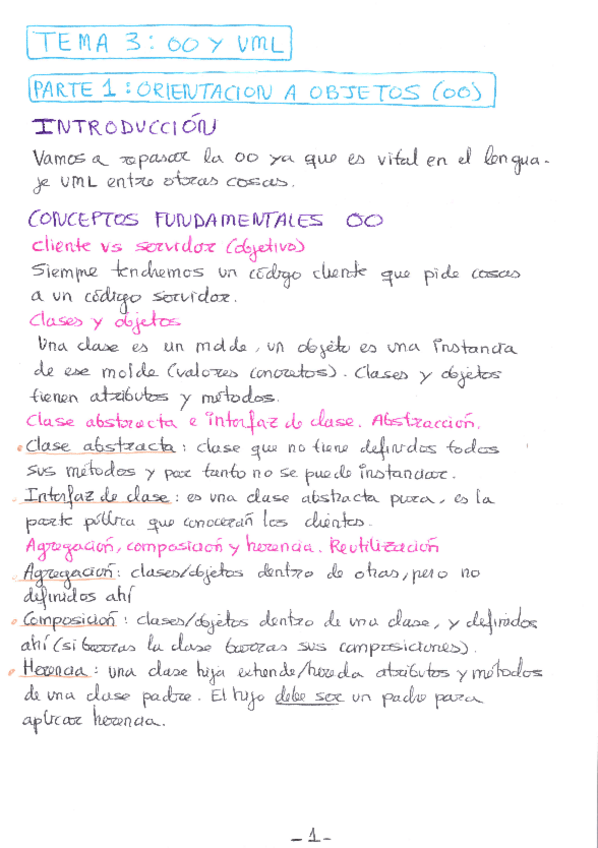 TEMA 3: OO Y UML
PARTE 1: ORIENTACION A OBJETOS (OO)
INTRODUCCIÓN
Vamos a repasar la OO ya que es vital en el lengua-
je UML entre otras cosas.
CONCEPTOS FUNDAMENTALES OO
cliente vs servidor (objetivo)
Siempre tendremos un código cliente que pide cosas
a un código servidor.
Clases y objetos
Una clase es un molde, un objeto es una instancia
de ese molde (valores concretos). Clases y objetos
tienen atributos y métodos.
Clase abstracta e interfaz de clase. Abstracción.
• Clase abstracta: clase que no tiene definidos todos
sus métodos y por tanto no se puede instanciar.
• Interfaz de clase: es una clase abstracta pura, es la
parte pública que conocerán los clientes.
Agregación, composición y herencia. Reutilización
• Agregación: clases/objetos dentro de otras, pero no
definidos ahí
• Composición: clases/objetos dentro de una clase, y definidos
ahí (si borras la clase borras sus composiciones).
• Herencia: una clase hija extiende/hereda atributos y métodos
de una clase padre. El hijo debe ser un padre para
aplicar herencia.
-1-